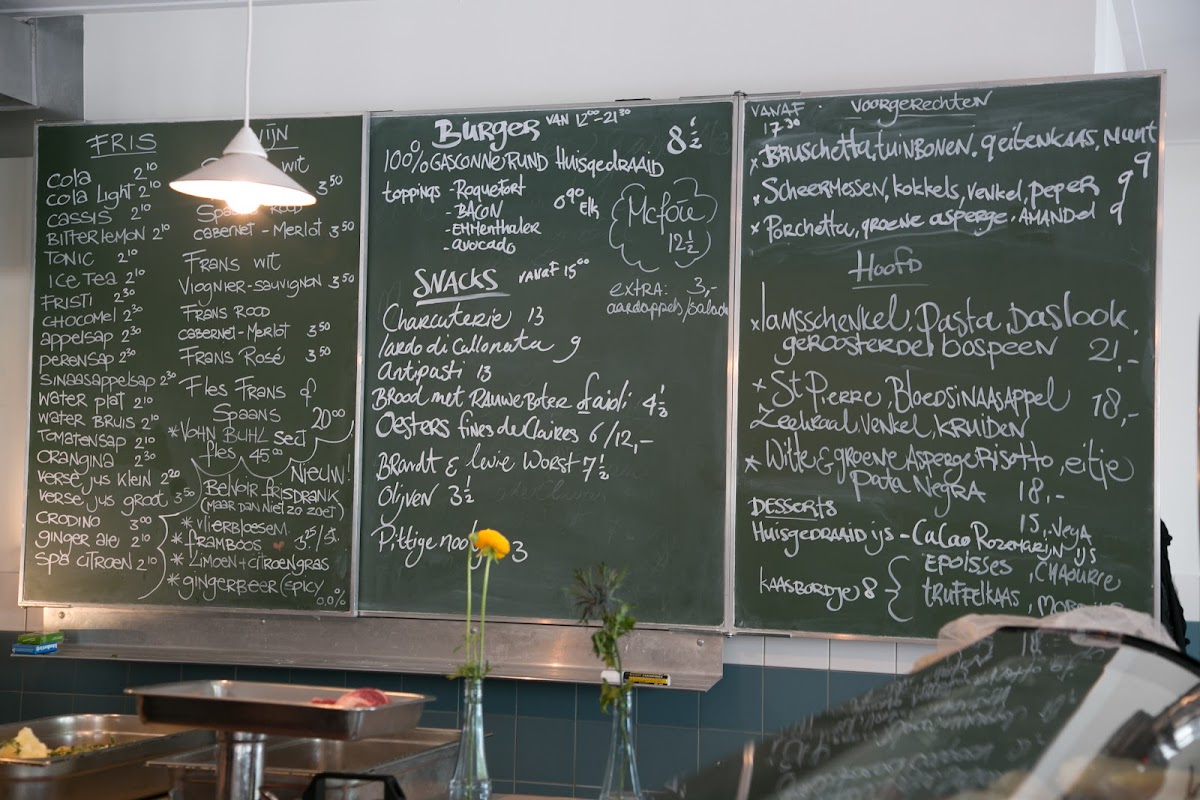 FRIS
cola 2.10
cola Light 2.10
cassis 2.10
Bitterlemon 2.10
Tonic 2.10
Ice Tea 2.10
Fristi 2.30
chocomel 2.30
appelsap 2.30
perensap 2.30
sinaasappelsap 2.30
water plat 2.10
water Bruis 2.10
Tomatensap 2.10
orangina 2.30
verse jus klein 2.20
verse jus groot 3.50
crodino 3.00
ginger ale 2.10
Spa citroen 2.10
IJN
wit
3.50
Rood
cabernet - Merlot 3.50
Frans wit
Viognier-sauvignon 3.50
Frans Rood
cabernet-Merlot 3.50
Frans Rosé 3.50
Fles Frans of
Spaans 20.00
*Vohn BUHL sect
fles 45.00
Nieuw!
Bettoir frisdrank
(maar dan niet zo zoet)
* vlierbloesem
* framboos 3.25/5.
* Limoen + citroengras
* gingerbeer (epicy
0.0%
BURGER VAN 12.00-21.30 8 1/2
100% GASCONNE RUND Huisgedraaid
toppings - Roquefort 0.90 Elk
- BACON
- Emmenthaler
- avocado
Mcfoie
12 1/2
extra: 3,-
aardappels/salade
SNACKS VANAF 15.00
Charcuterie 13
lardo di Collonata 9
Antipasti 13
Brood met Rauwe Boter of aioli 4 1/2
Oesters fines de Claires 6/12,-
Brandt & Levie Worst 7 1/2
Olijven 3 1/2
Pittige 3
VANAF 17.30
VOORGERECHTEN
* Bruschetta, tuinbonen, geitenkaas, Munt 9
* Scheermessen, kokkels, venkel, peper 9
* Porchetta, groene asperge, AMANDEL 9
Hoofd
* lamsschenkel, Pasta, Daslook,
geroosterde bospeen 21.-
* St. Pierre, Bloedsinaasappel 18,-
Zeekraal, Venkel, KRUIDEN
* Witte & groene Asperge Risotto, eitje
Pata Negra 18,-
15,. Vega
DESSERTS
Huisgedraaid ijs - CaCao Rozemarijn ijs
KAASBORDJE 8 { EPOISSES, CHAOURCE
TRUFFELKAAS,